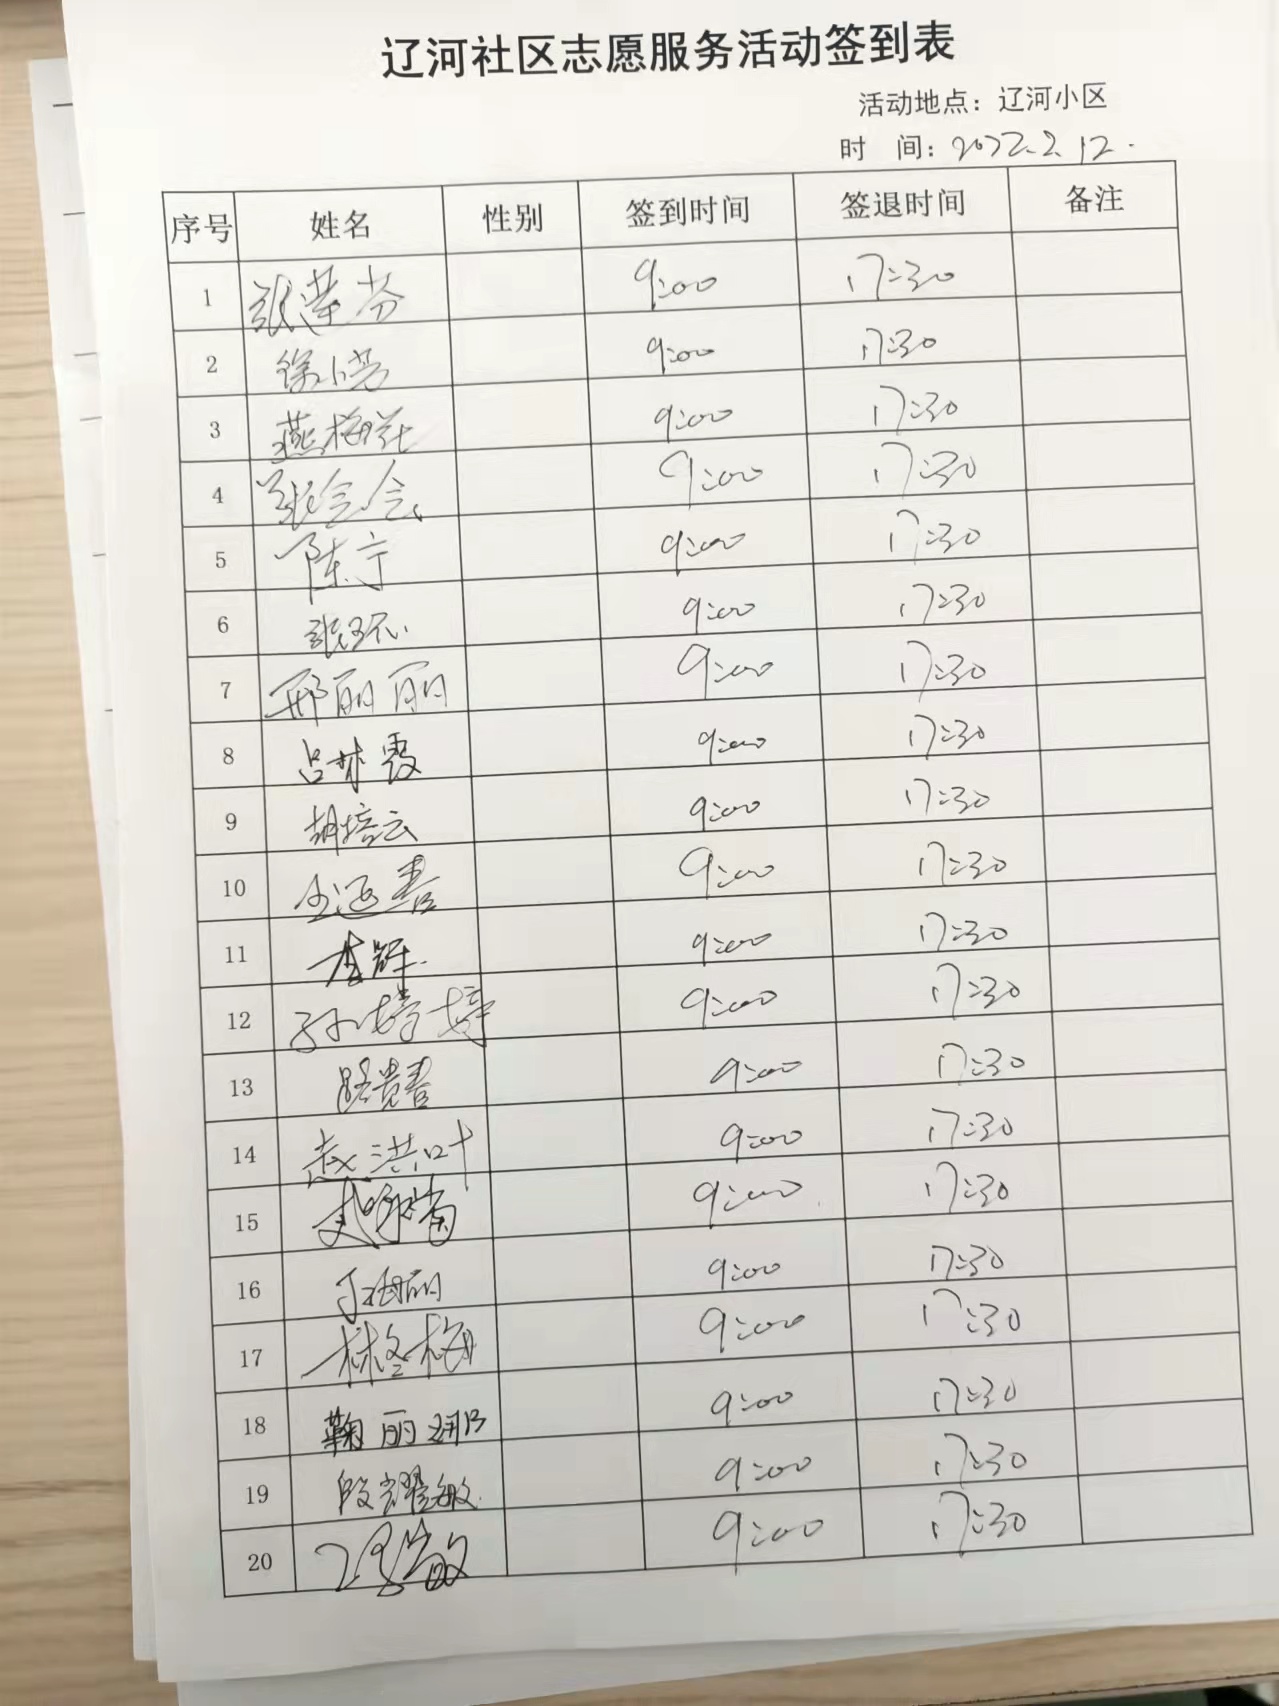 辽河社区志愿服务活动签到表
活动地点：辽河小区
时 间：2022.2.12.
序号 姓名 性别 签到时间 签退时间 备注
1 9:00 17:30
2 9:00 17:30
3 燕梅 9:00 17:30
4 张会会 9:00 17:30
5 陈宁 9:00 17:30
6 9:00 17:30
7 邢丽丽 9:00 17:30
8 吕林霞 9:00 17:30
9 胡培云 9:00 17:30
10 9:00 17:30
11 李辉 9:00 17:30
12 孙婷婷 9:00 17:30
13 路贵春 9:00 17:30
14 赵洪叶 9:00 17:30
15 9:00 17:30
16 9:00 17:30
17 林冬梅 9:00 17:30
18 鞠丽娜 9:00 17:30
19 段耀敏 9:00 17:30
20 9:00 17:30